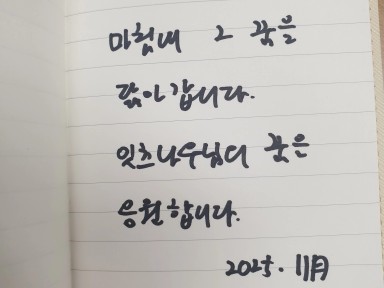 마침내 그 꿈은
닮아갑니다.
잇츠나우님의 꿈은
응원합니다.
2025. 11月